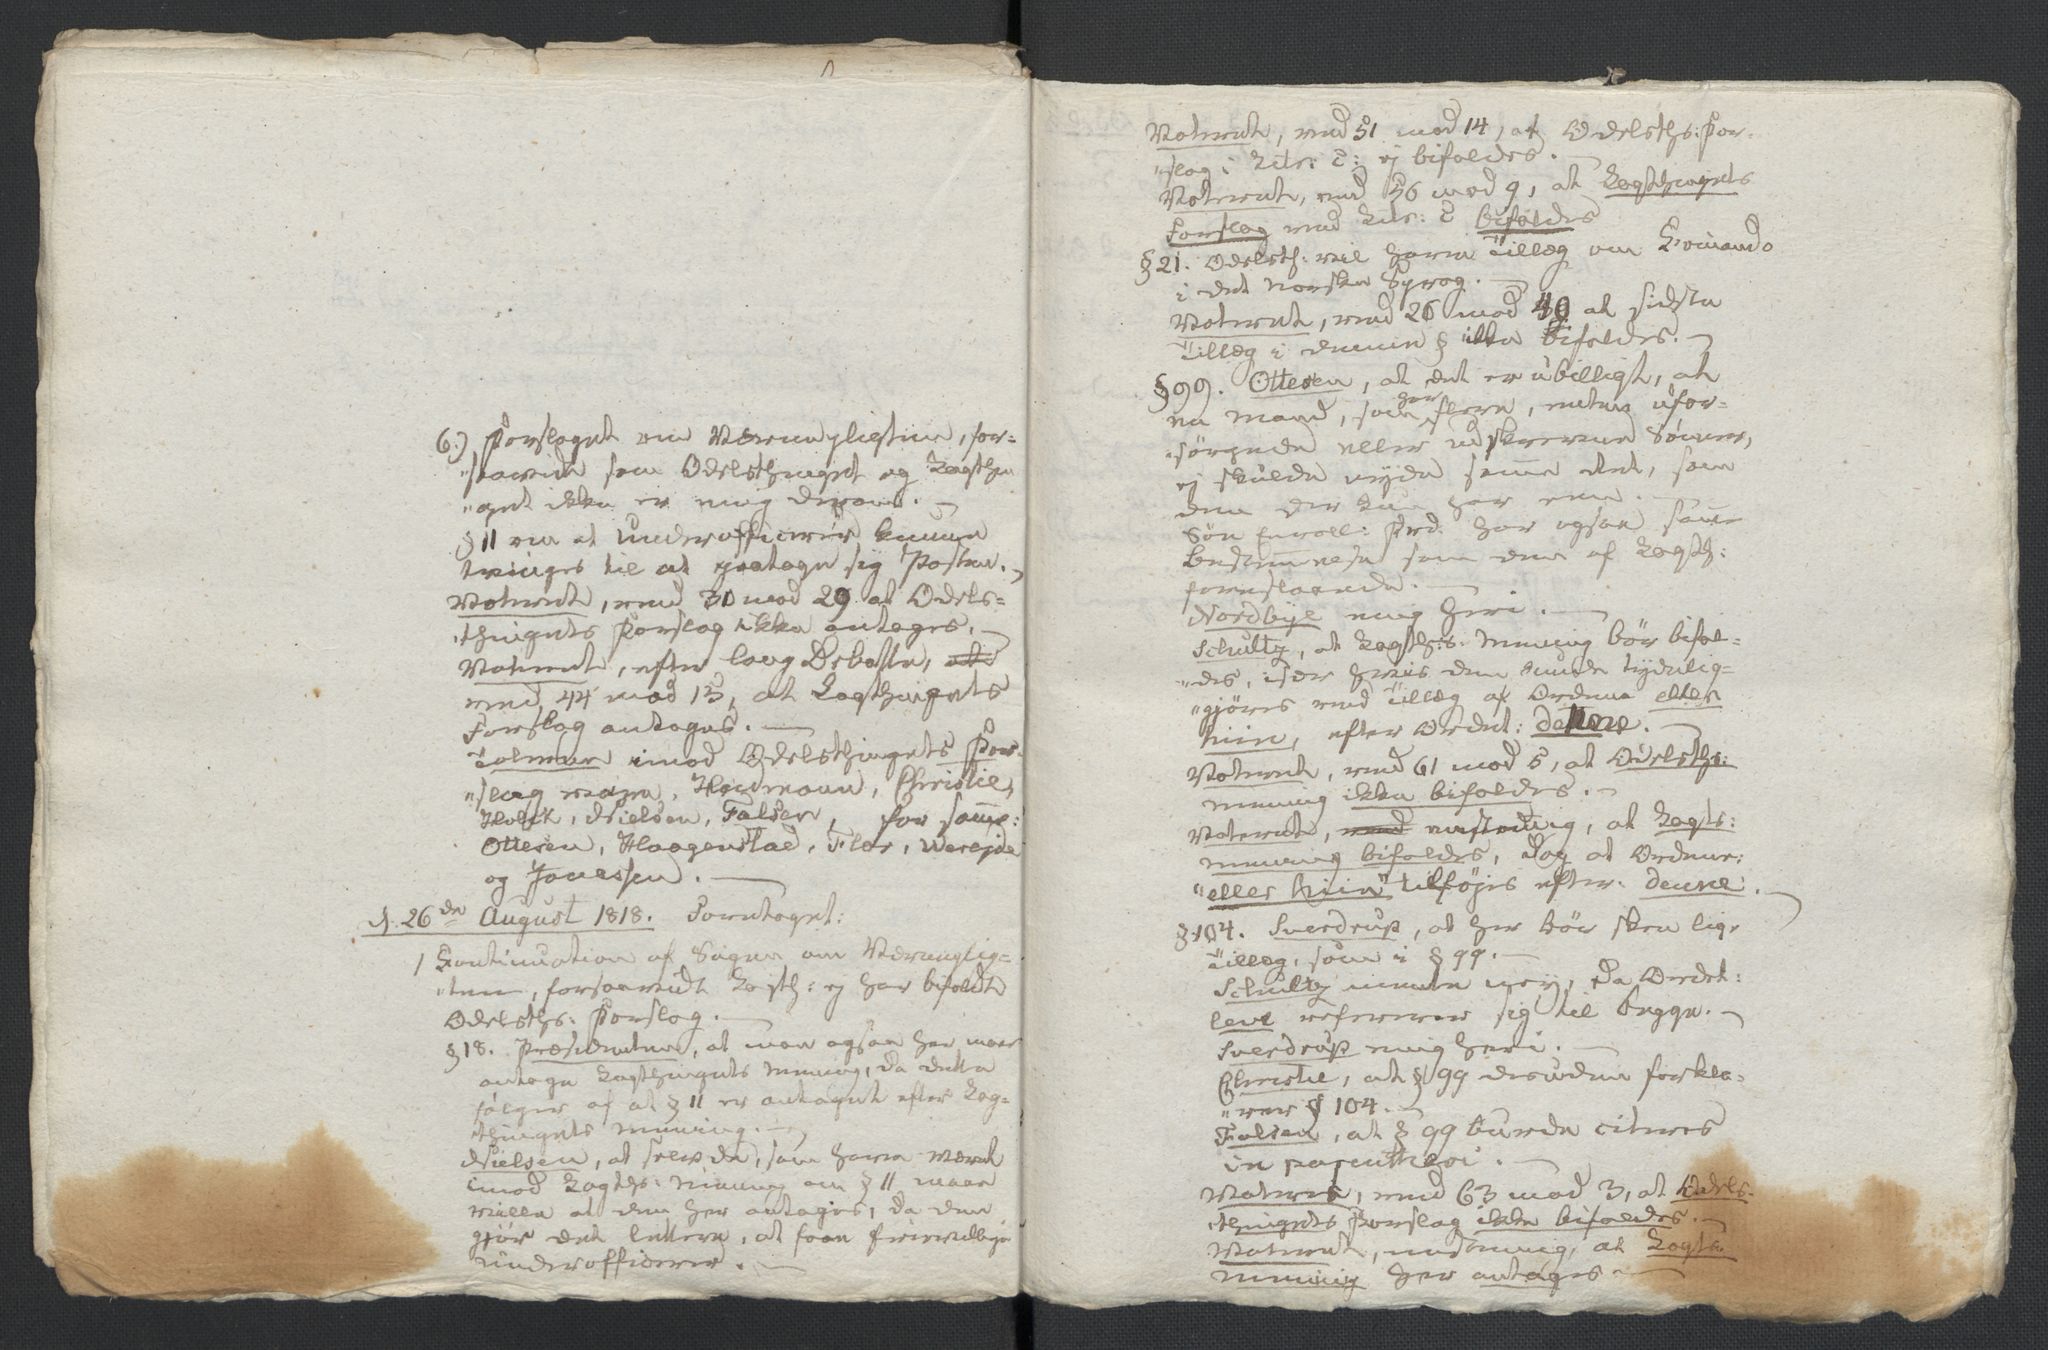 6.) Forslaget om Værnepligten, for-
"saavidt som Odelsthinget og Lagthin
"get ikke er enig derom. –
§ 11 om at Underofficerer kunne
tvinges til at paatage sig Posten. –
Voterede, med 30 mod 29 at Odels-
thingets Forslag ikke antages. –
Voteredt, efter lang Debatte, at
med, 44 mod 13, at Lagthingets
Forslag antages. –
Talerne imod Odelsthingets For-
"slag vare, Heidmann, Christie,
Holck, Nielsen, Falsen, for samme:
Ottesen, Haagenstad, Flor, Wereide
og Jonassen. –
d. 26de August 1818. Foretaget:
1 Continuation af Sagen om Værneplig-
"ten, forsaavidt Lagth: ej har bifaldt
Odelsths: Forslag. –
§ 18. Præsidenten, at man ogsaa her maae
antage Lagthingets Mening, da dette
følger af at § 11 er antaget efter Lag-
thingets Mening. –
Nielsen, at selv de, som have været
imod Lagths: Mening om § 11 maae
ville at den her antages, da den
gjør det lettere, at faae frievillige
Underofficerer. –
Voteredt, med 51 mod 14, at Odelsths: For-
"slag i Litr: c: ej bifaldes. –
Voteredt, med 56 mod 9, at Lagthingets
Forslag med Litr: c bifaldes
§ 21. Odelsth: vil have Tillæg om Comando
i det norske Sprog. –
Voteredt, med 26 mod 40 at sidste
Tillæg i denne § ikke bifaldes. –
§ 99. Ottesen, at det er ubilligt, at
en Mand, som har flere, enten ufor-
sørgede eller udskrevne Sønner,
ej skulde nyde samme Ret, som
den der kun har een
Søn Enroll: Frd. har ogsaa samme
Bestemmelse som den af Lagth:
foreslaaede. –
Nordbye enig heri. –
Schultz, at Lagth:s Mening bør bifal-
"des, især hviis den kunde tydelig-
"gjøres med Tillæg af Ordene eller
hiin, efter Ordet: denne. –
Voteredt, med 61 mod 5, at Odelsths:
Mening ikke bifaldes. –
Voteredt, med eenstemmig, at Lagts:
Mening bifaldes, dog at Ordene:
"eller hiin" tilføjes efter: denne. –
§ 104. Sverdrup, at her bør skee lige
Tillæg, som i § 99. –
Schultz mente nej, da Ordet:
leve refererer sig til begge. –
Sverdrup enig heri. –
Christie, at § 99 desuden forkla-
"rer § 104. –
Falsen, at § 99 burde citeres
in parenthesi. –
Voteres, med 63 mod 3, at Odels-
thingets Forslag ikke bifaldes. –
Voteredt, eenstemmig, at Lagts
Mening her antages –